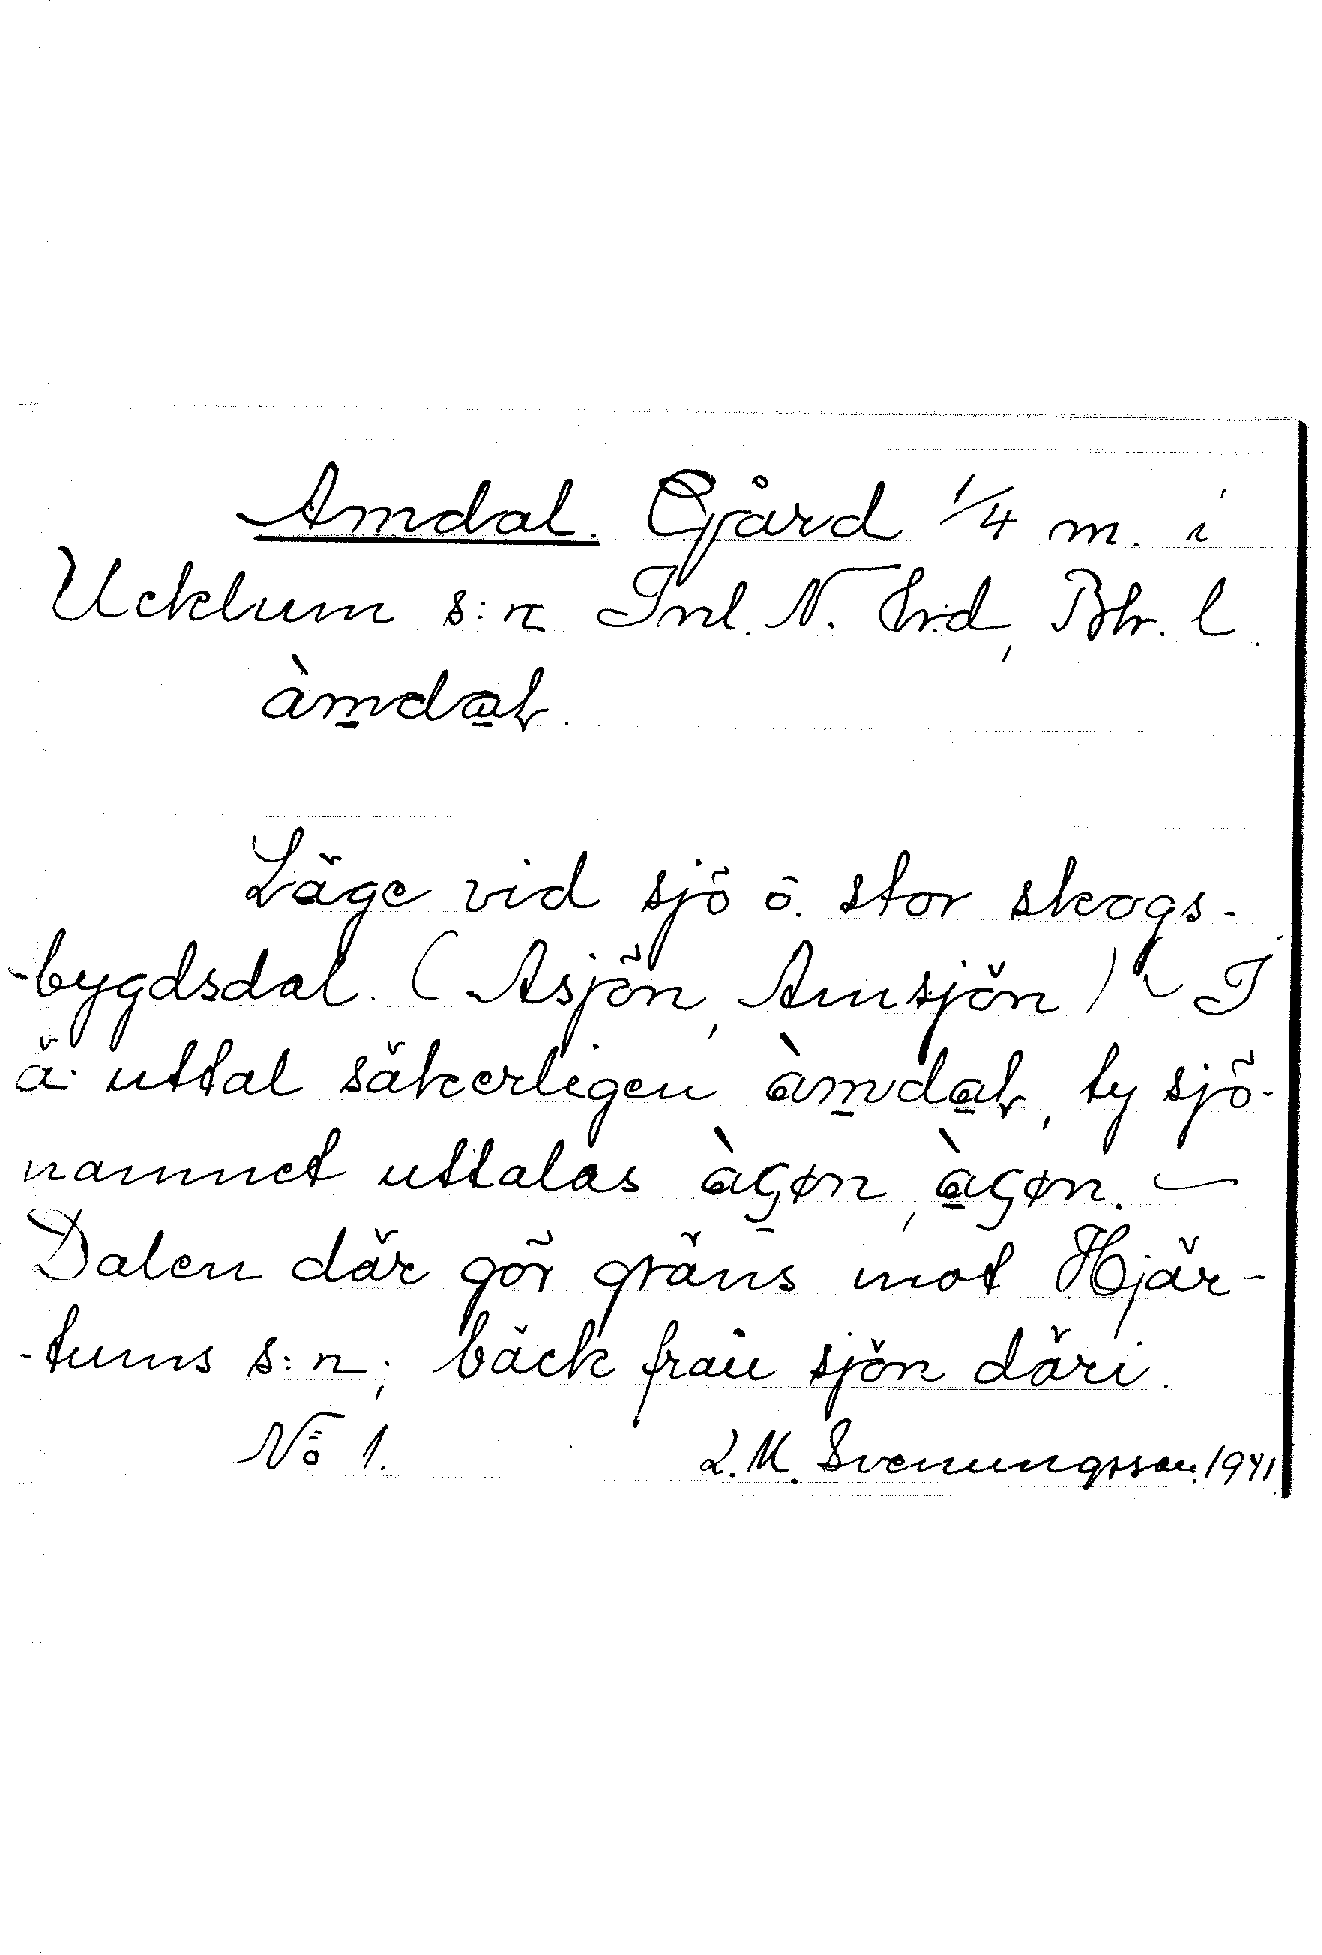 Amdal. Gård 1/4 m. i
Ucklum s:n Inl. N. Hrd, Bhr. l.
àmdaƚ.
Läge vid sjö o. stor skogs-
-bygdsdal. (Asjön, Amsjön) - I
ä. uttal säkerligen àmdaƚ, ty sjö-
namnet uttalas àʂøn, àʂøn. —
Dalen där gör gräns mot Hjär-
-tums s:n; bäck från sjön däri.
No 1. L. M. Svenungsson. 1941